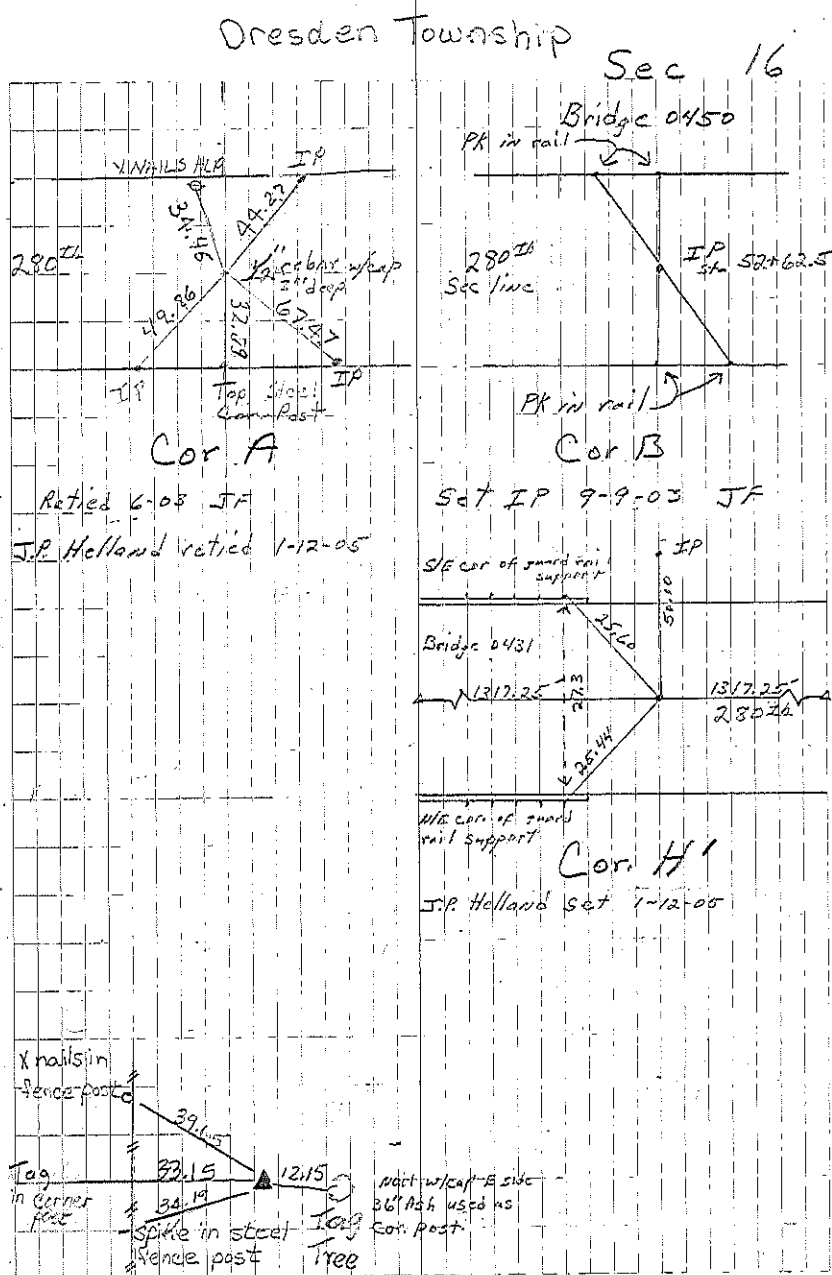 Dresden Township
Sec 16
X Nails HLP
IP
34.46
44.27
280th
1/2" rebar w/cap
3" deep
49.86
32.59
67.47
IP
Top Steel
Corn Post
IP
Cor. A
Retied 6-03 JF
J.P. Helland retied 1-12-05
Bridge 0450
PK in rail
280th
Sec line
IP
Sta 52+62.5
PK in rail
Cor B
Set IP 9-9-03 JF
S/E cor of guard rail
support
IP
50.00
25.60
Bridge 0431
1317.25'
27.3
1317.25'
280th
25.44
N/E cor. of guard
rail support
Cor. H'
J.P. Helland set 1-12-05
X nails in
fence post
39.65
Tag
in corner
post
33.15
12.15
34.19
Spike in steel
fence post
Tag
Tree
Nail w/cap E side
36" Ash used as
cor. post.